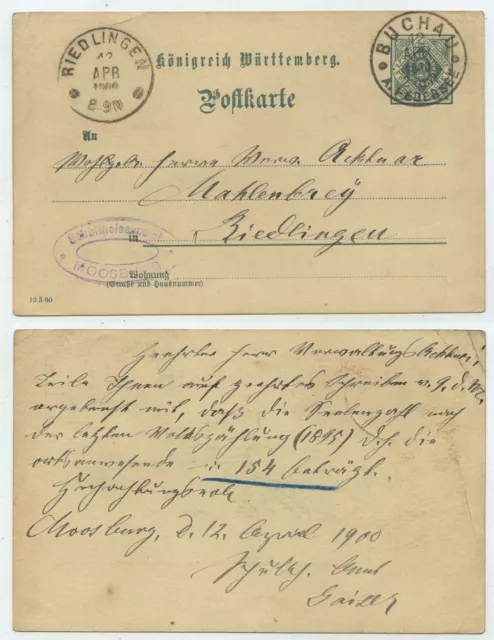 RIEDLINGEN
12
APR
1900
8-9N
Königreich Württemberg.
Postkarte
BUCHAU
A. FEDERSEE
An
Wohlgeb. Herrn Verw. Acktuar
Mahlenbrey
in Riedlingen
Schultheissenamt
MOOSBURG
Wohnung
(Straße und Hausnummer)
12 3 00
Geehrter Herr Verwaltungs Acktuar!
Teile Ihnen auf geehrtes Schreiben v. 9. d. M.
ergebenst mit, daß die Seelenzahl nach
der letzten Volkszählung (1895) d. h. die
ortsanwesende 154 beträgt.
Hochachtungsvoll
Moosburg, d. 12. April 1900
Schulth. Amt